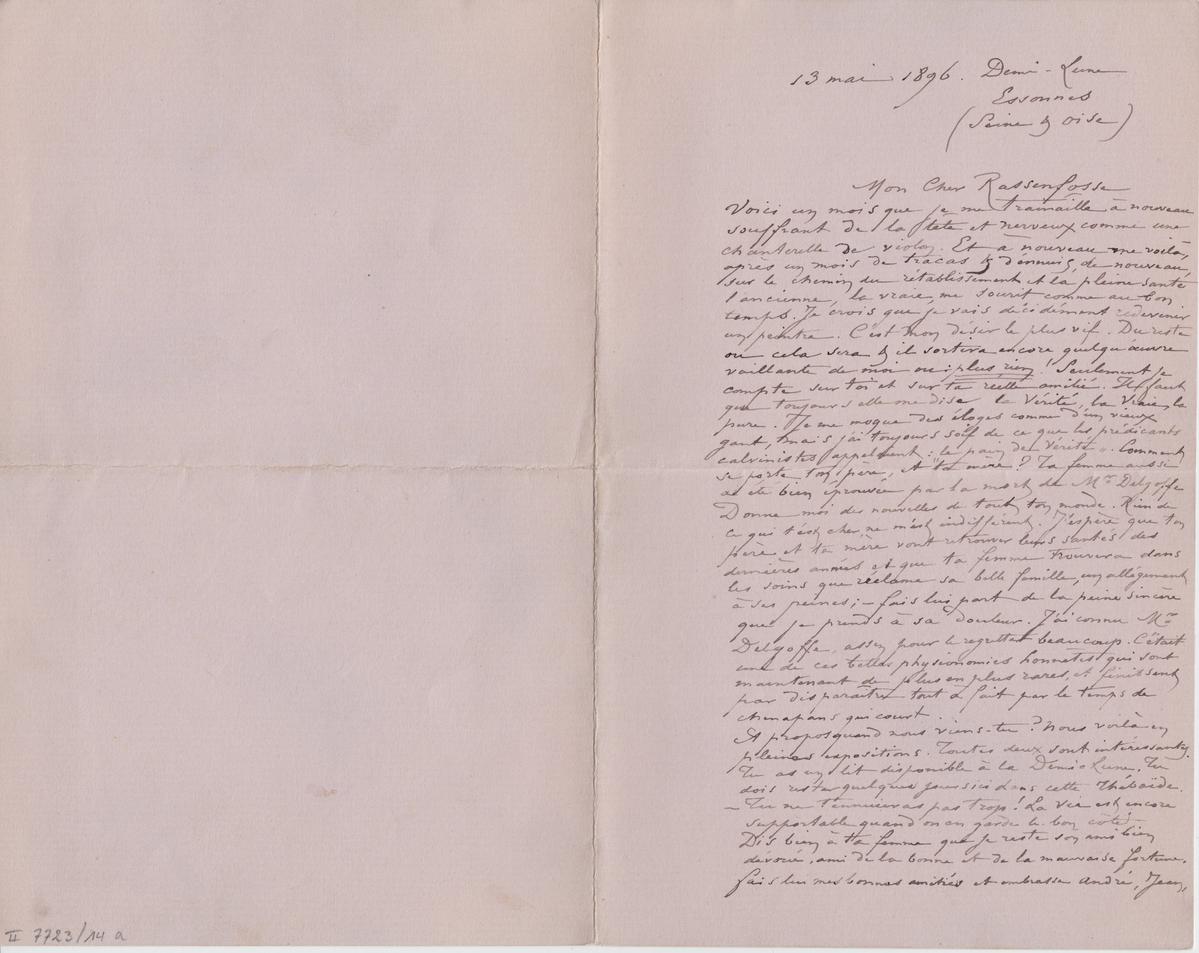 13 mai 1896. Demi-Lune
Essonnes
(Seine & Oise)
Mon Cher Rassenfosse
Voici un mois que je me travaille à nouveau
souffrant de la tête et nerveux comme une
chanterelle de violon. Et à nouveau me voilà,
après un mois de tracas & d'ennuis, de nouveau,
sur le chemin du rétablissement et la pleine santé
l'ancienne, la vraie, me sourit comme au bon
temps. Je crois que je vais décidément redevenir
un peintre. C'est mon désir le plus vif. Du reste
ou cela sera & il sortira encore quelqu'œuvre
vaillante de moi ou : plus rien! Seulement je
compte sur toi et sur ta réelle amitié. Il faut
que toujours elle me dise la Vérité, la Vraie, la
pure. Je me moque des éloges comme d'un vieux
gant, mais j'ai toujours soif de ce que les prédicants
calvinistes appellent : "le pain de Vérité". Comment
se porte ton père, et ta mère? Ta femme aussi
a été bien éprouvée par la mort de Mr Delgoffe
Donne moi des nouvelles de tout ton monde. Rien de
ce qui t'est cher, ne m'est indifférent. J'espère que ton
père et ta mère vont retrouver leurs santés des
dernières années et que ta femme trouvera dans
les soins que réclame sa belle famille, un allègement
à ses peines; – fais lui part de la peine sincère
que je prends à sa douleur. J'ai connu Mr
Delgoffe, assez pour le regretter beaucoup. C'était
une de ces belles physionomies honnêtes qui sont
maintenant de plus en plus rares, et finissent
par disparaître tout à fait par le temps de
chenapans qui court.
A propos quand nous viens-tu? Nous voilà en
pleines expositions. Toutes deux sont intéressantes.
Tu as un lit disponible à la Demi-Lune. Tu
dois rester quelques jours ici dans cette Thébaïde.
– Tu ne t'ennuieras pas trop! La vie est encore
supportable quand on en garde le bon côté! –
Dis bien à ta femme que je reste son ami bien
dévoué, ami de la bonne et de la mauvaise fortune.
fais lui mes bonnes amitiés et embrasse André, Jean,
II 7723/14 a